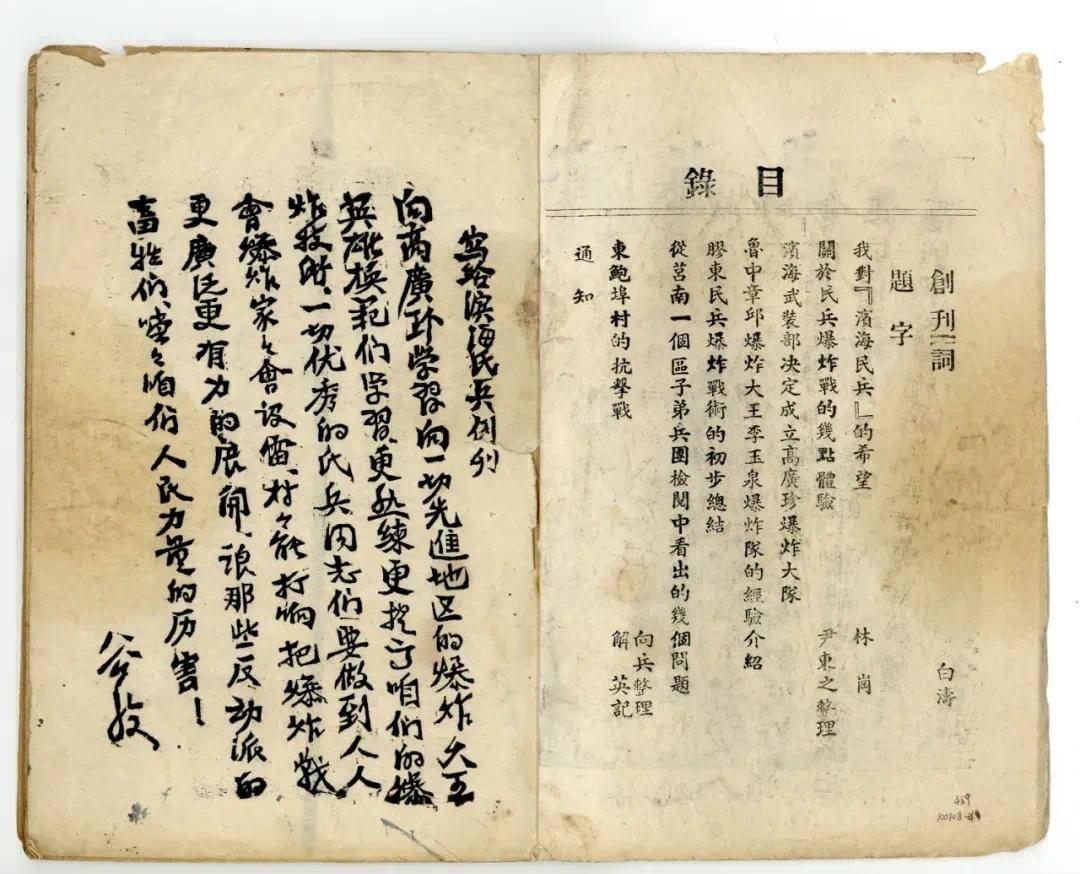 目錄
創刊詞 白濤
題字
我對『濱海民兵』的希望 林崗
關於民兵爆炸戰的幾點體驗 尹東之整理
濱海武裝部决定成立高廣珍爆炸大隊
魯中章邱爆炸大王李玉泉爆炸隊的經驗介紹
膠東民兵爆炸戰術的初步總結
從莒南一個區子弟兵團檢閱中看出的幾個問題 向兵整理
東鮑埠村的抗擊戰 解英記
通知
459
写给滨海民兵创刊
向高廣珍学習向一切先進地区的爆炸大王
英雄模范们学習,更熟練更提高咱们的爆
炸技術,一切优秀的民兵同志们要做到人人
會爆炸家々會设雷、村々能打响把爆炸战
更廣泛更有力的展開,讓那些反动派的
畜牲们、嚐々咱们人民力量的历害!
谷牧